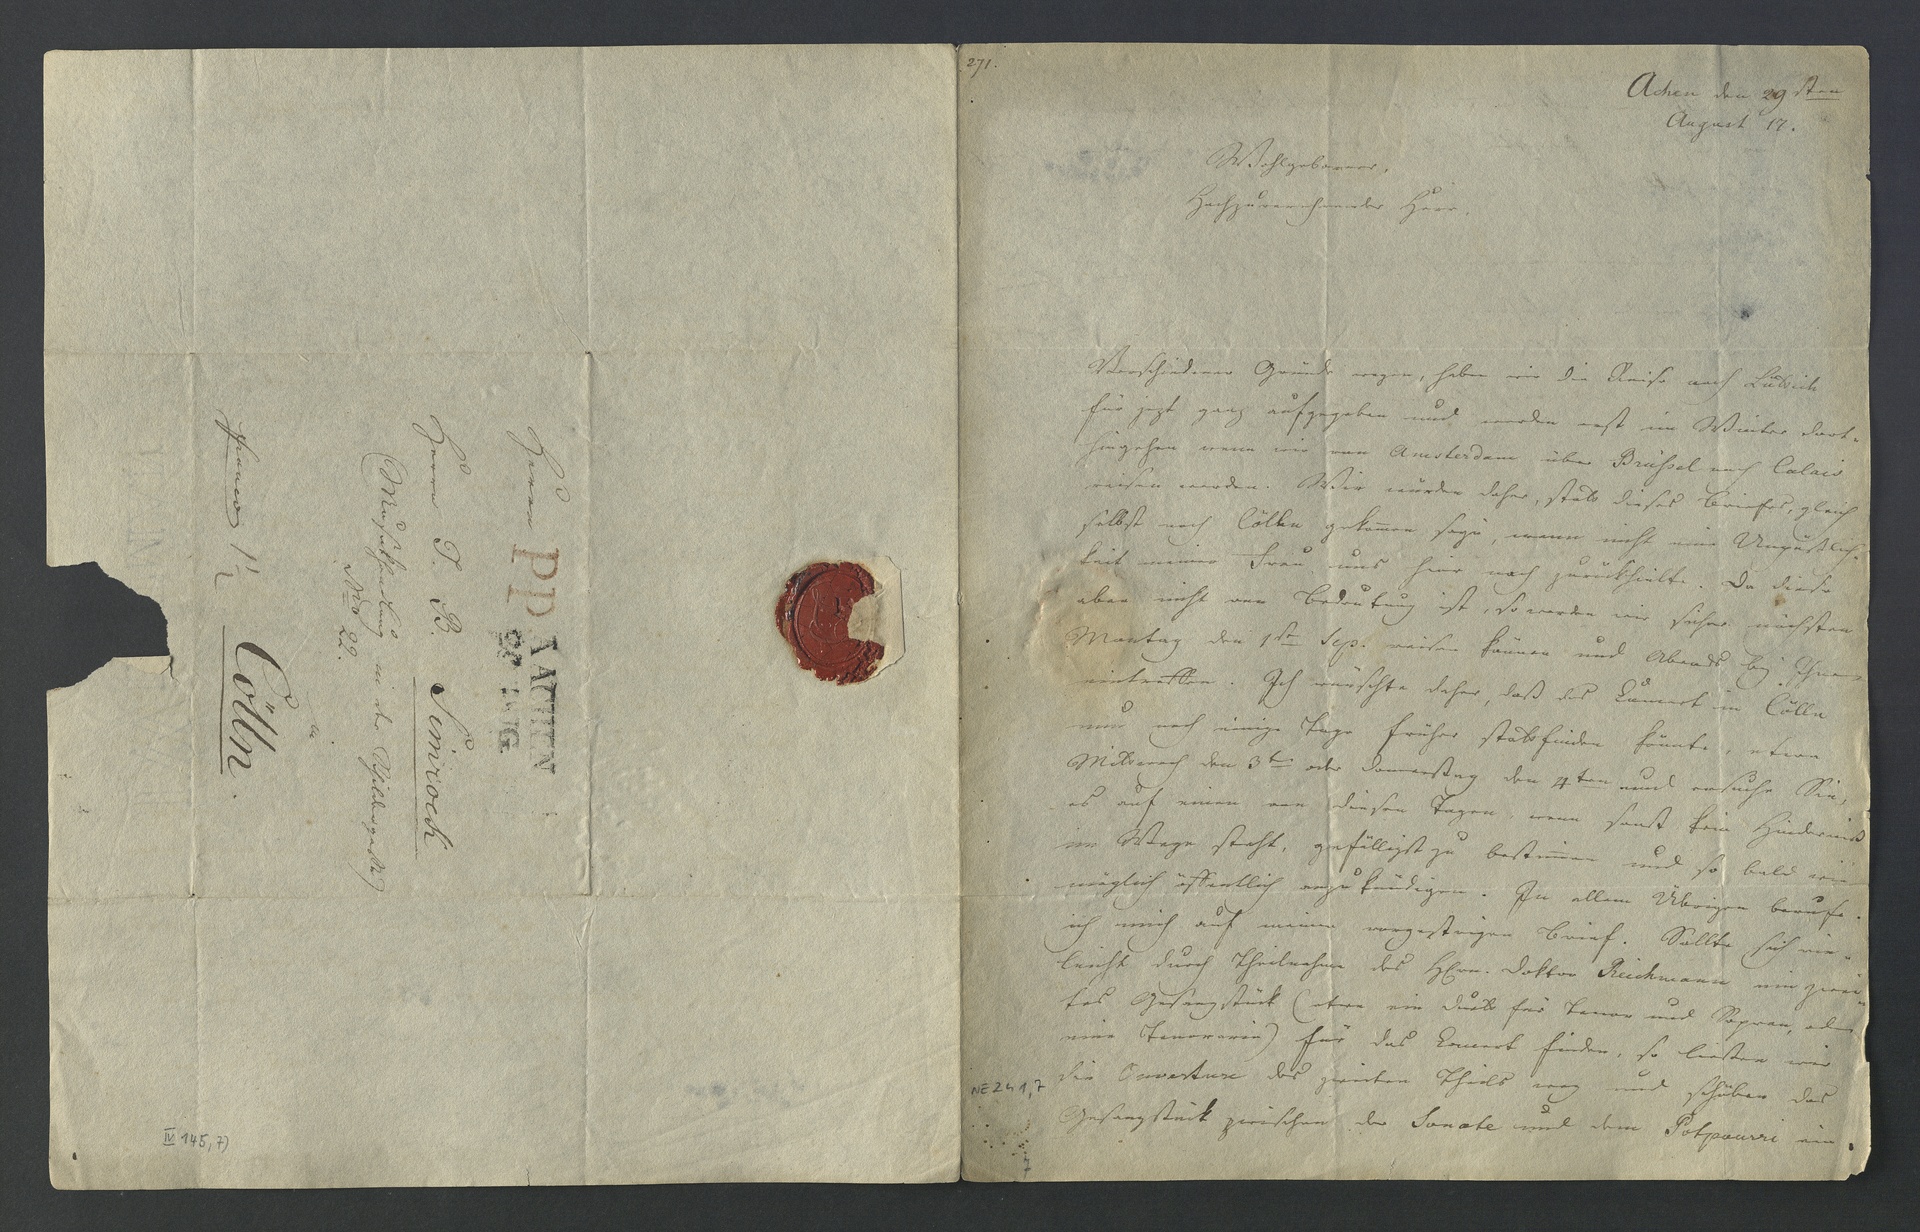 Herrn
Herrn P. B. Simrock
(Musikhandlung in der Schildergasse)
Nro 22.
in
Cölln.
franco
PP
AACHEN
29 AUG.
IV 145,7)
271.
Achen den 29sten
August 17.
Wohlgeborner,
Hochzuverehrender Herr,
Verschiedener Gründe wegen, haben wir die Reise nach Lüttich
für jezt ganz aufgegeben und werden erst im Winter dort-
hingehen wenn wir von Amsterdam über Brüssel nach Calais
reisen werden. Wir würden daher, statt dieses Briefes, gleich
selbst nach Cölln gekommen seyn, wenn nicht eine Unpäßlich-
keit meiner Frau uns hier noch zurückhielte. Da diese
aber nicht von Bedeutung ist, so werden wir sicher nächsten
Montag den 1sten Sep. reisen können und Abends bey Ihnen
eintreffen. Ich wünschte daher, daß das Concert in Cölln
nun noch einige Tage früher stattfinden könnte, etwa
Mittwoch den 3ten oder Donnerstag den 4ten und ersuche Sie,
es auf einen von diesen Tagen, wenn sonst kein Hinderniß
im Wege steht, gefälligst zu bestimmen und so bald wie
möglich öffentlich anzukündigen. In allem Übrigen berufe
ich mich auf meinen vorgestrigen Brief. Sollte sich viel-
leicht durch Theilnahme des HErrn. Doktor Reichmann ein zwei-
tes Gesangstück (etwa ein Duett für Tenor und Sopran, oder
eine Tenorarie) für das Concert finden, so ließen wir
die Ouverture des zweiten Theils weg und schöben das
Gesangstück zwischen der Sonate und dem Potpourri ein
NE 241,7